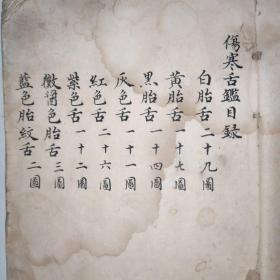 傷寒舌鑑目録
白胎舌二十九圖
黃胎舌一十七圖
黑胎舌一十四圖
灰色舌一十一圖
紅色舌二十六圖
紫色舌一十二圖
黴醬色胎舌三圖
藍色胎紋舌二圖